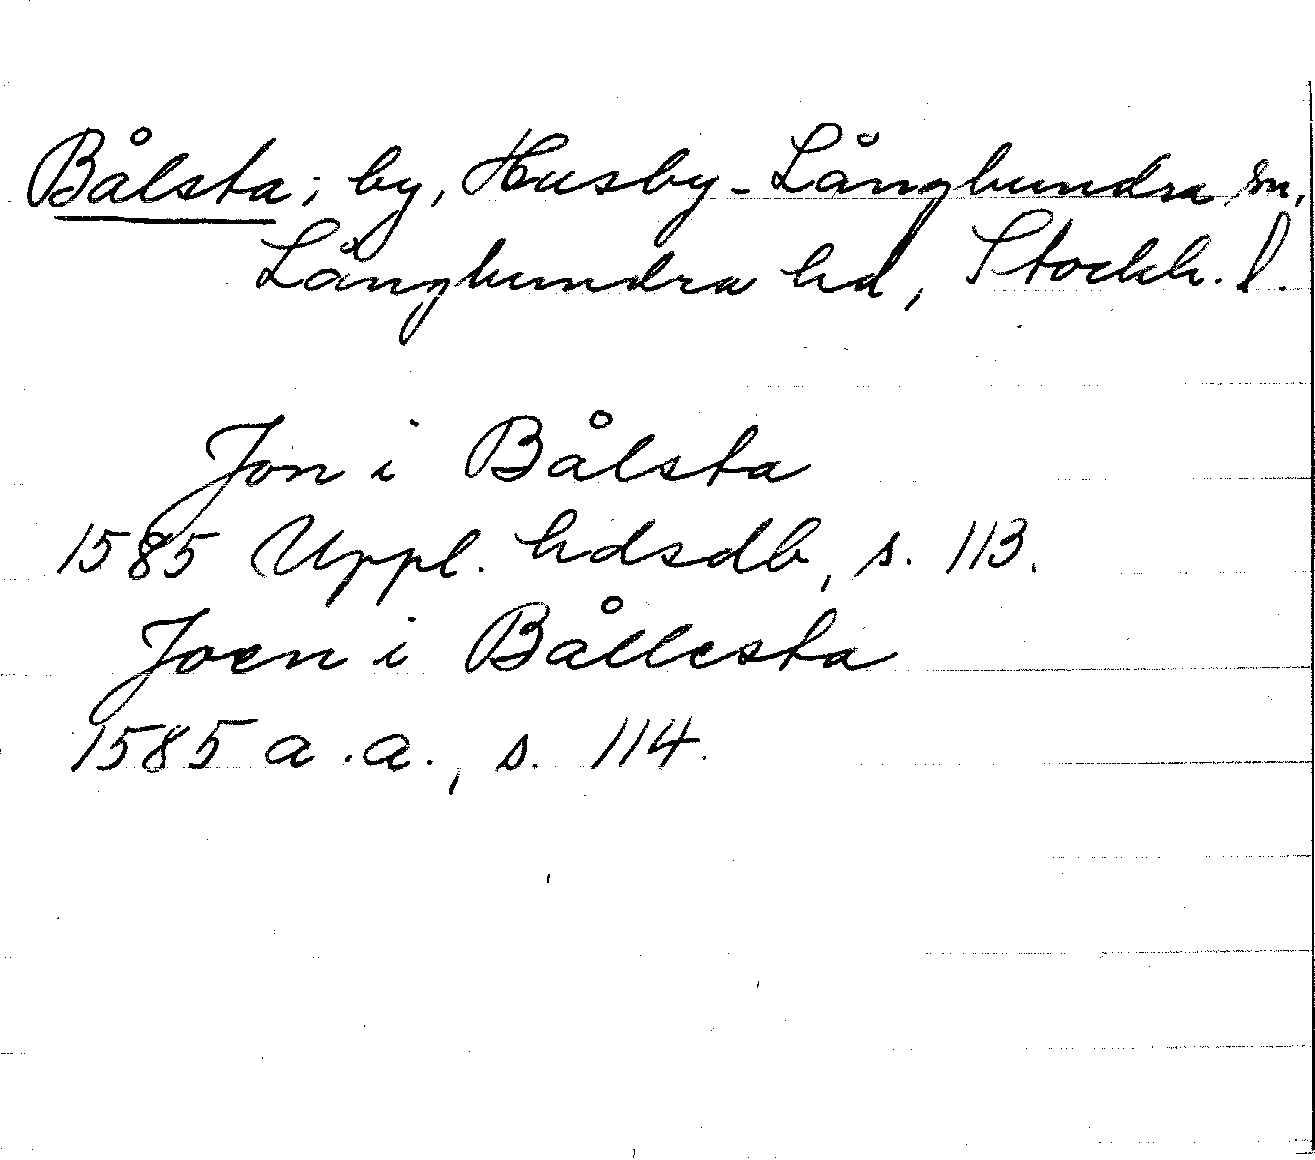 Bålsta; by, Husby-Långhundra sn,
Långhundra hd, Stockh. l.
Jon i Bålsta
1585 Uppl. hdsdb, s. 113.
Joen i Bållesta
1585 a.a., s. 114.